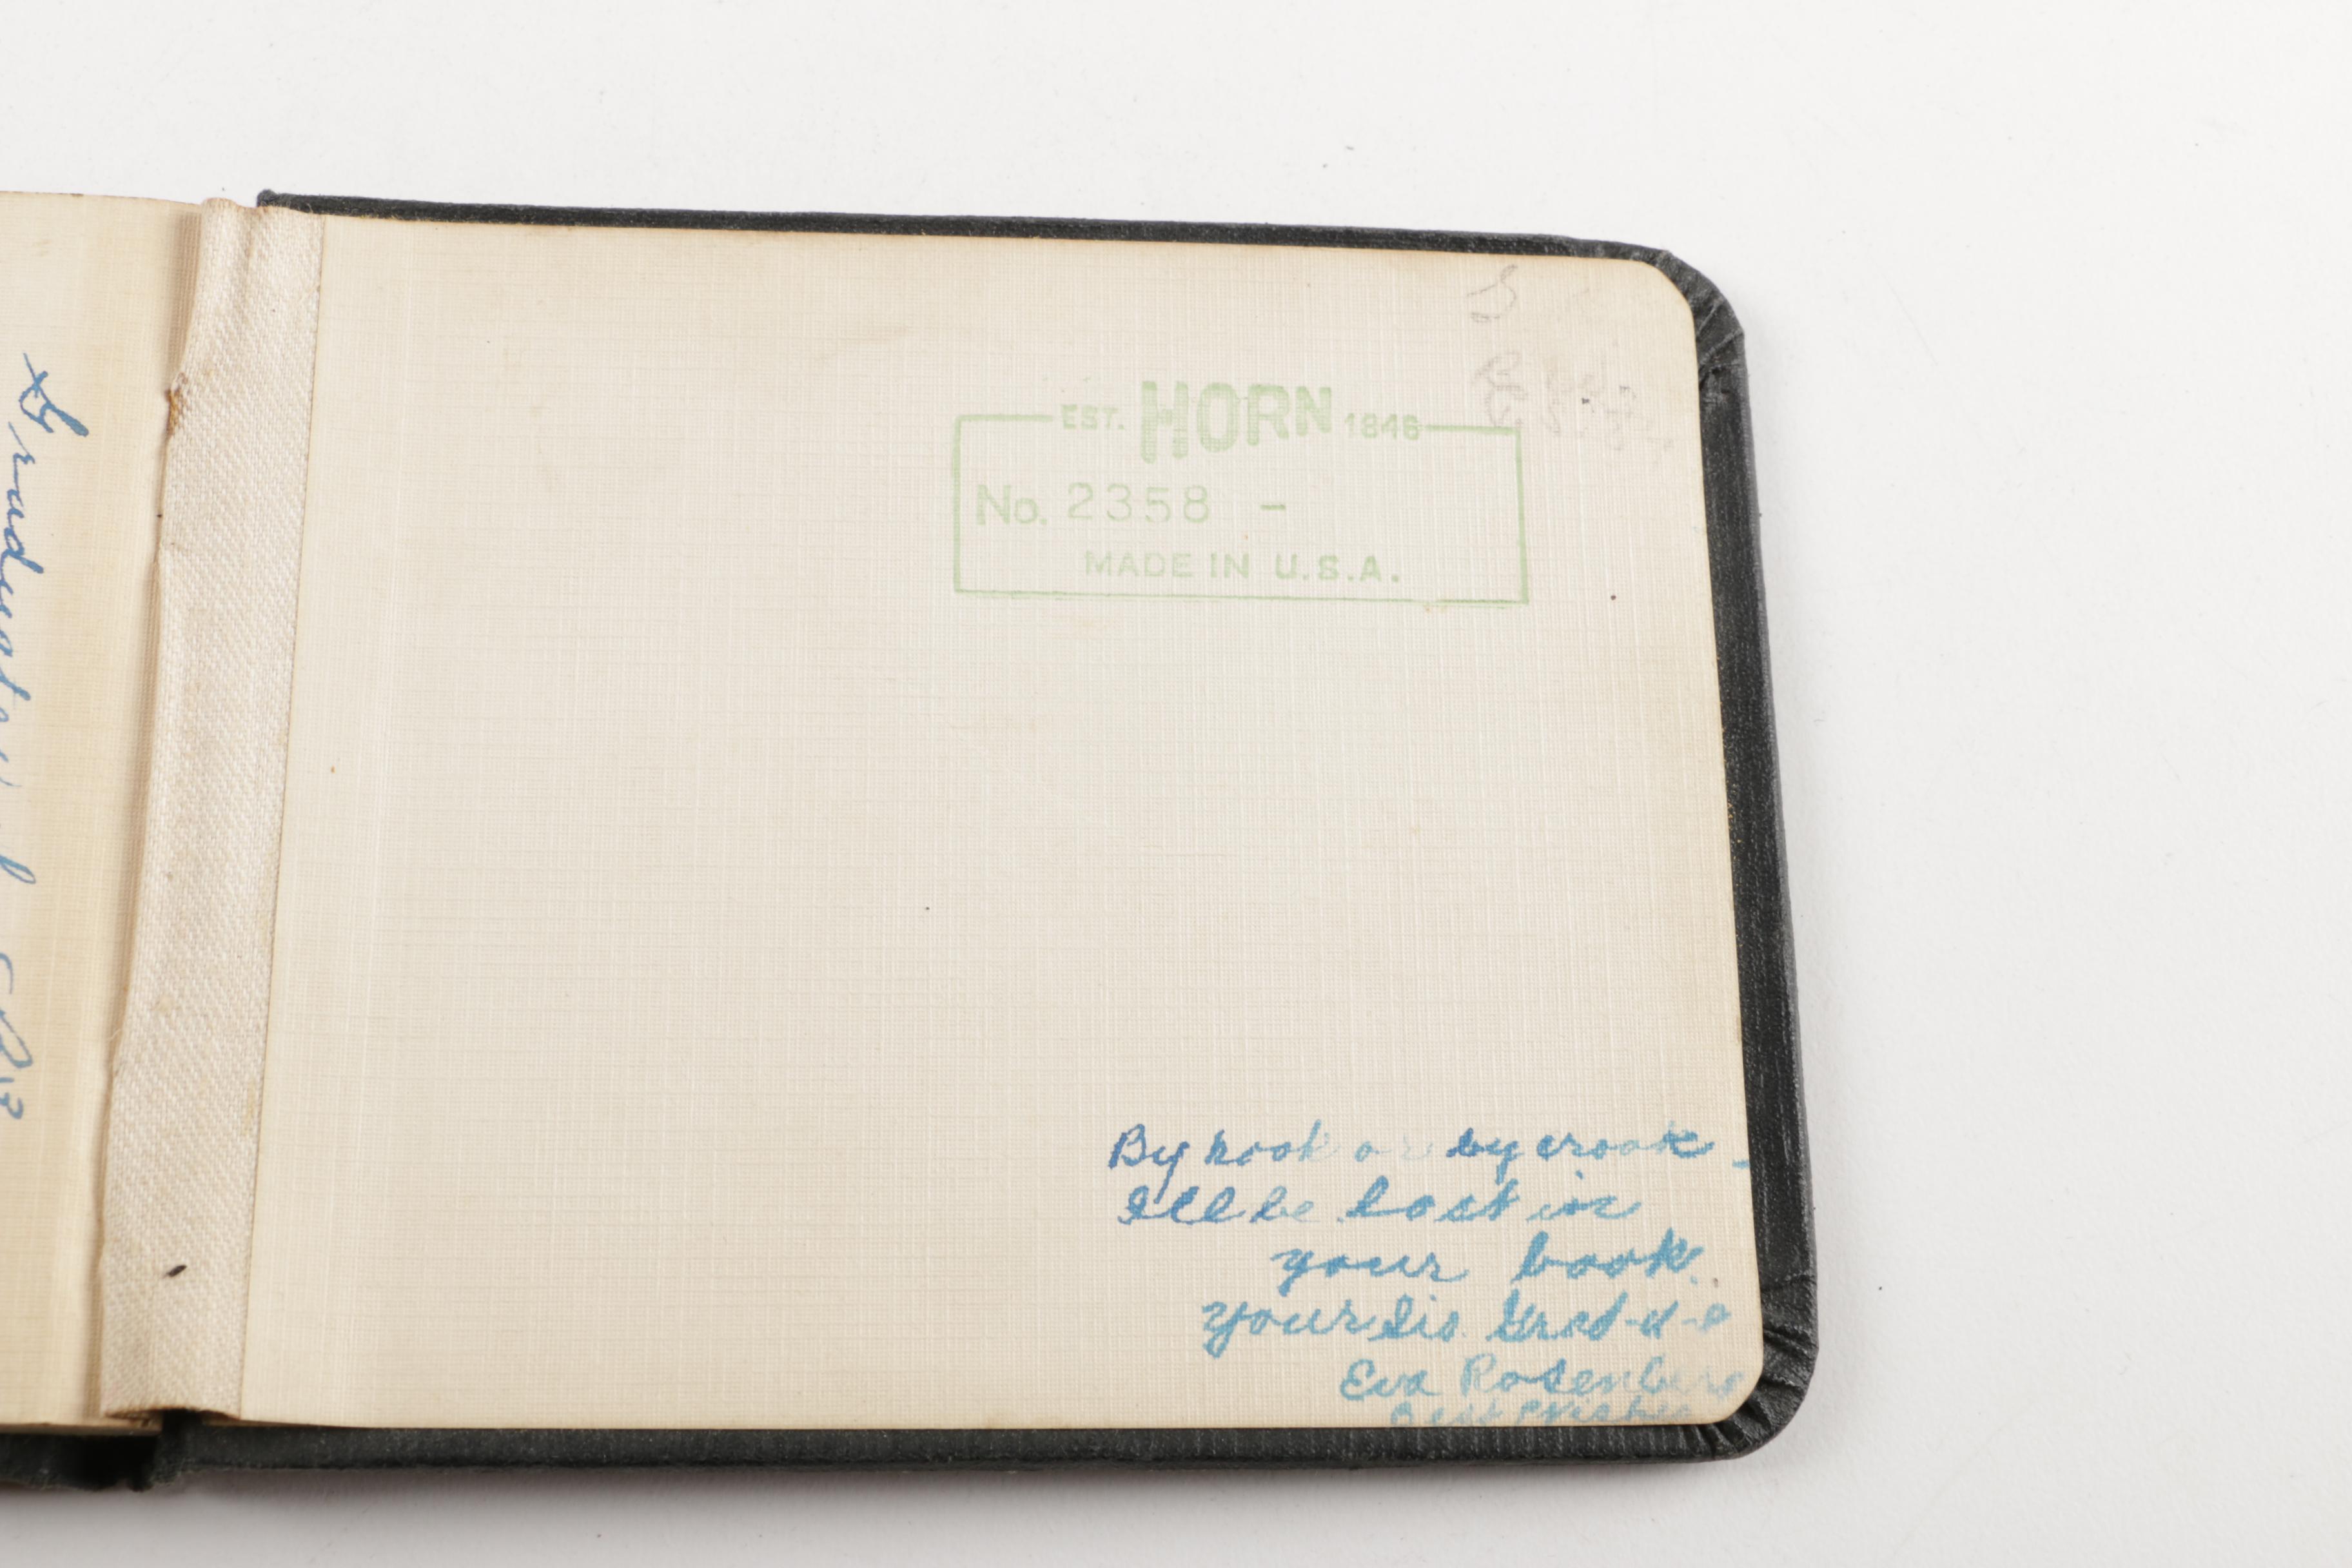 EST. HORN 1846
No. 2358 -
MADE IN U.S.A.
By hook or by crook -
I'll be last in
your book.
Your Sis Grad-u-a
Eva Rosenberg
Best Wishes